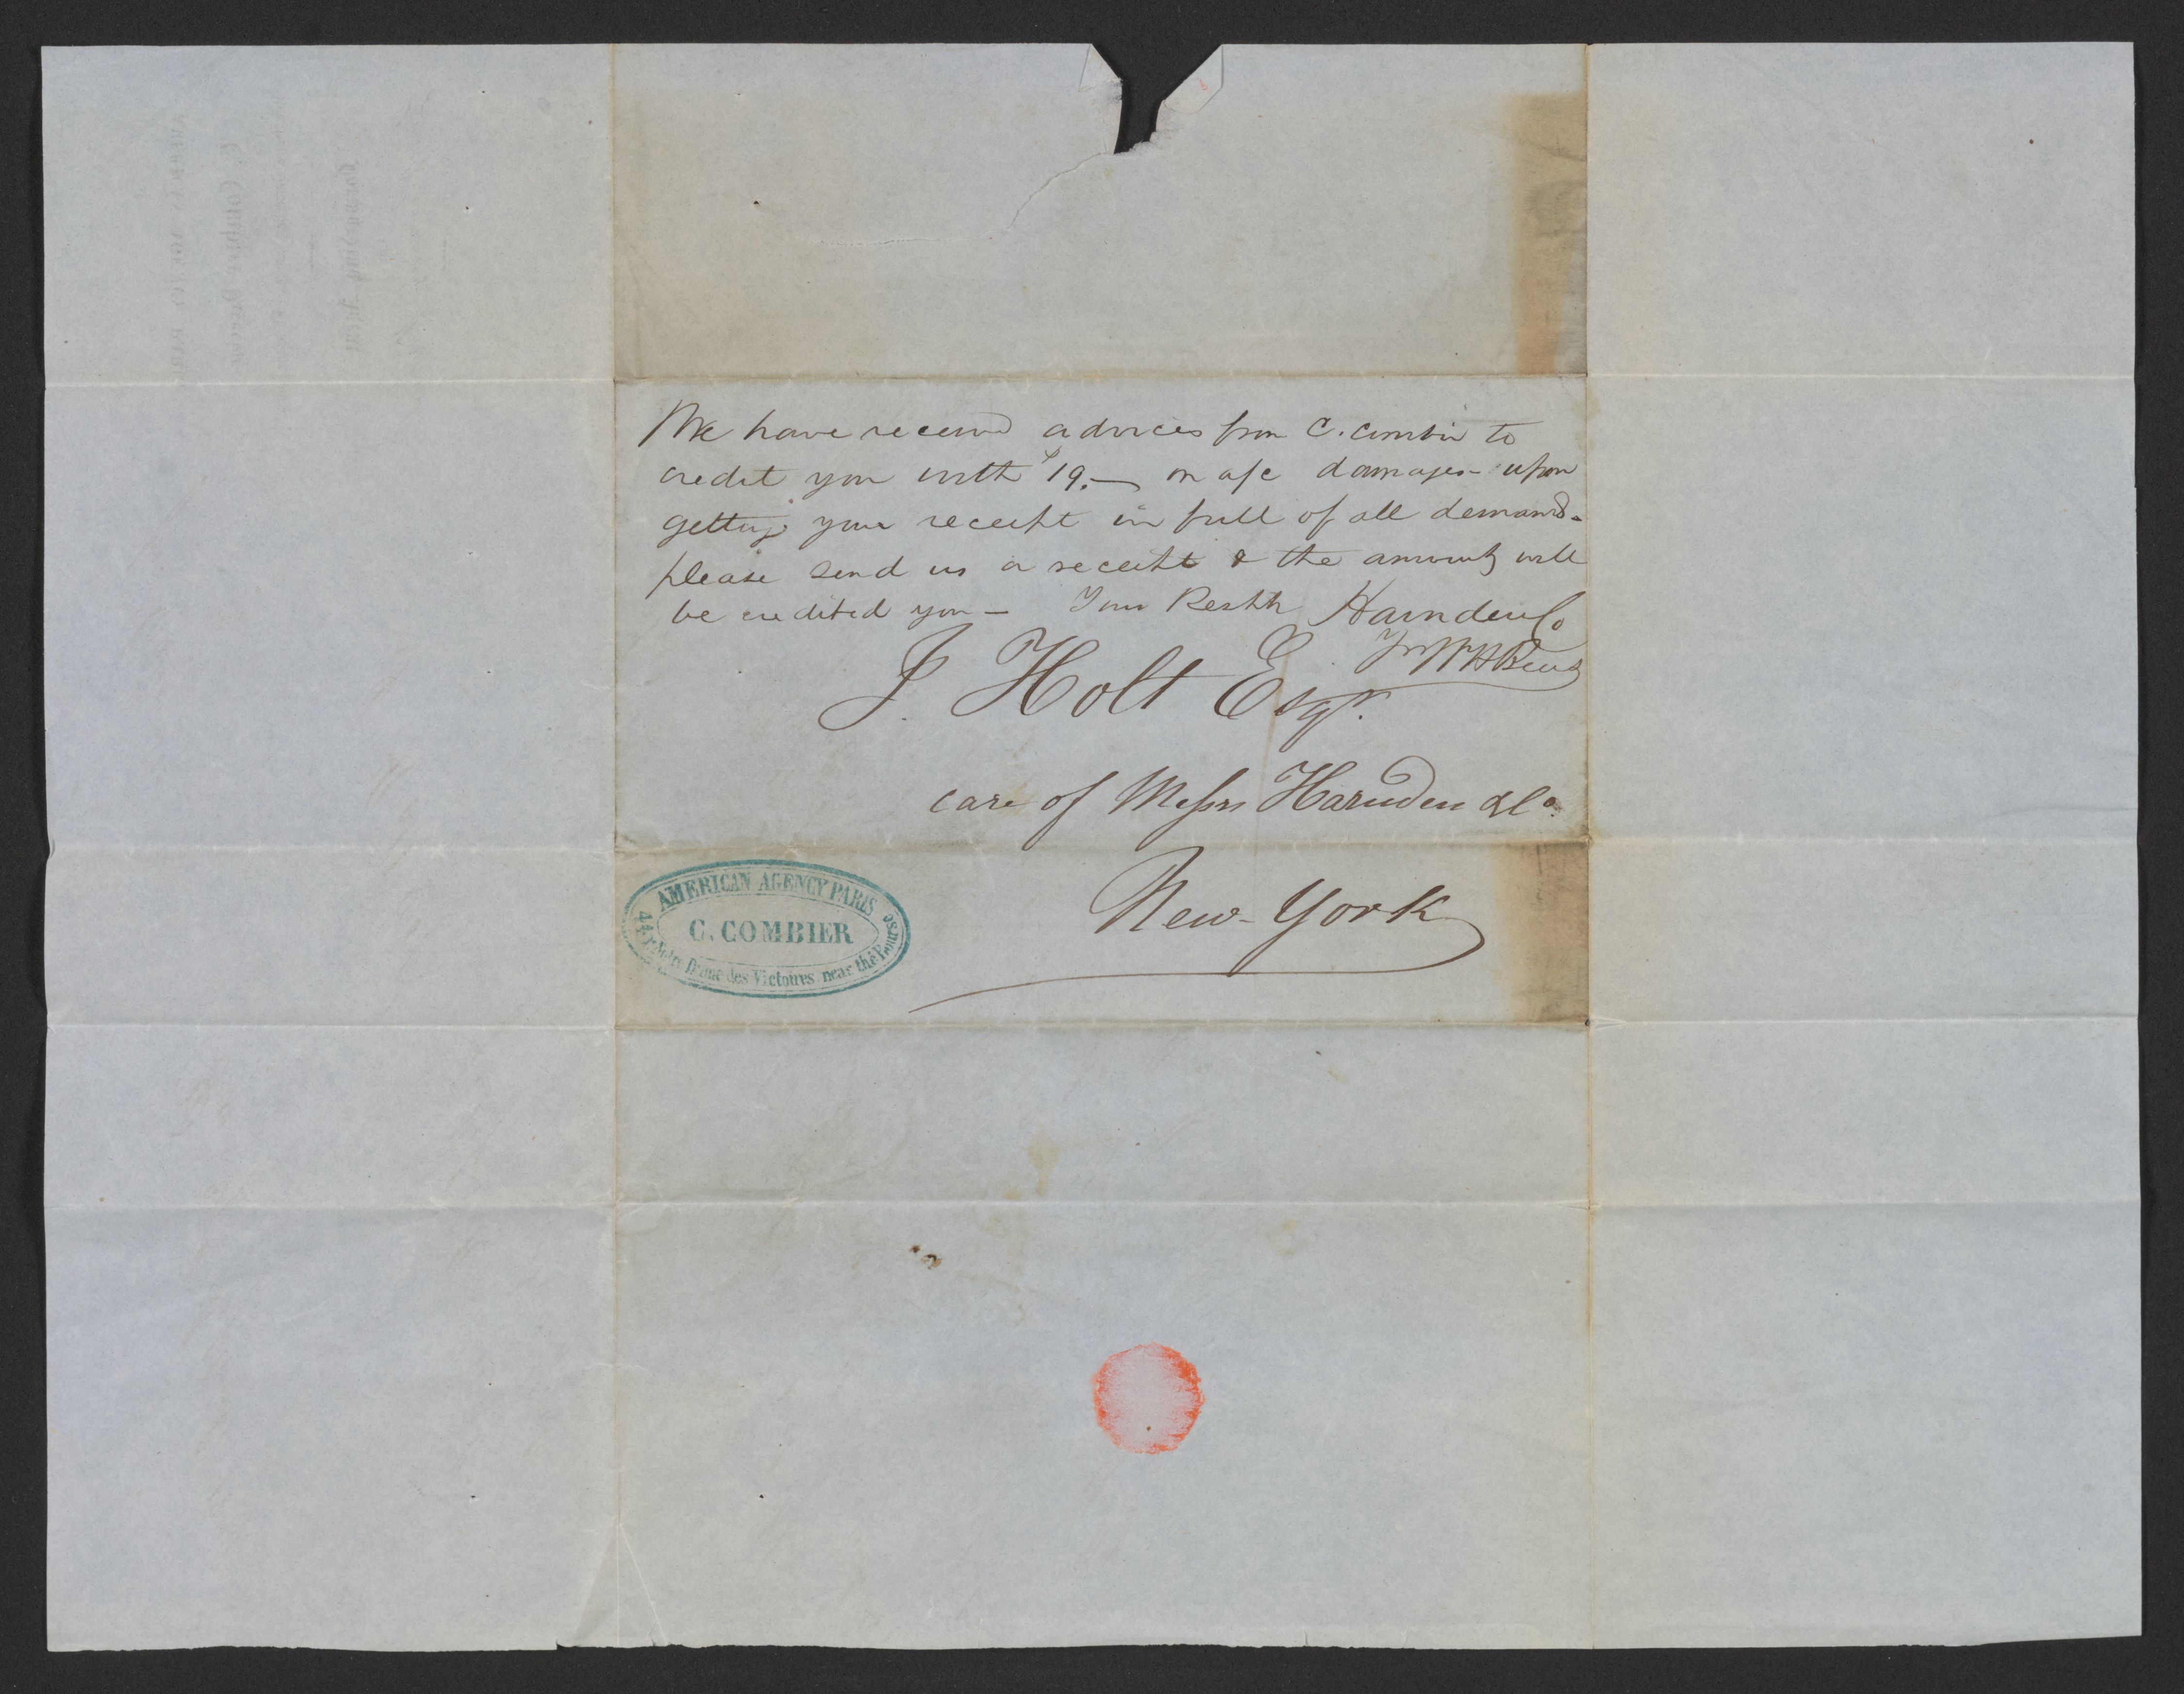 We have received advices from C. Combier to
credit you with $19.— on a/c damages— upon
getting your receipt in full of all demands—
please send us a receipt & the amount will
be credited you— Your Respth Harnden Co
J. Holt Esqr.
care of Messrs Harnden & Co.
New-York
AMERICAN AGENCY PARIS
C. COMBIER
44 r. Notre Dame des Victoires near the Bourse